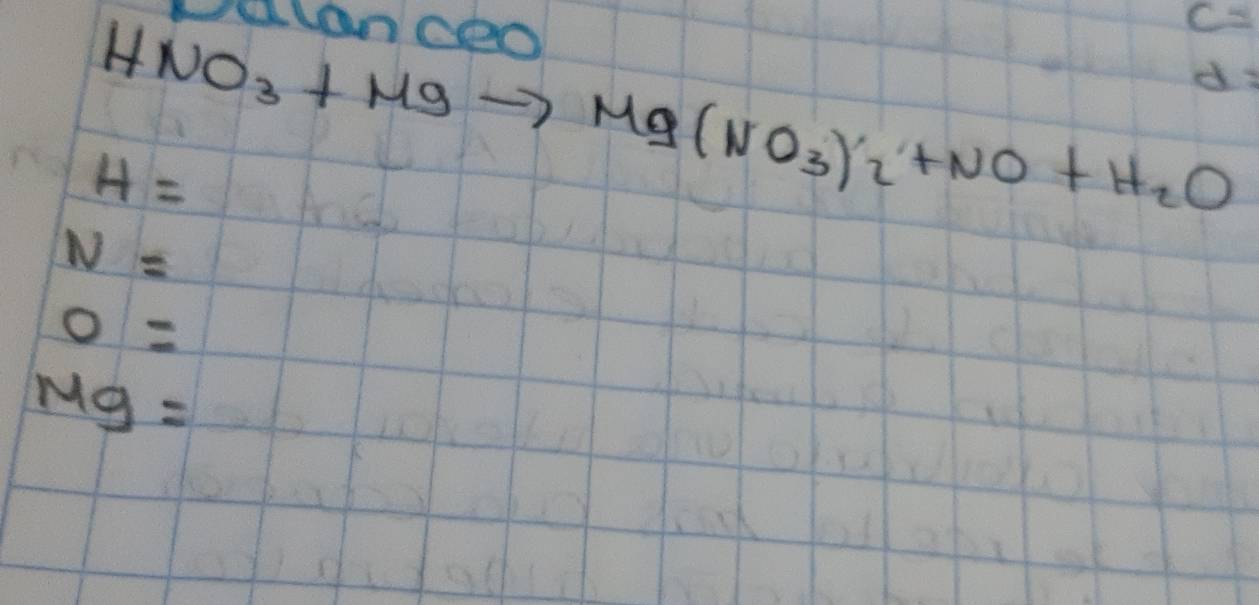 Balanceo
HNO₃ + Mg → Mg(NO₃)₂ + NO + H₂O
H =
N =
O =
Mg =
C=
d=